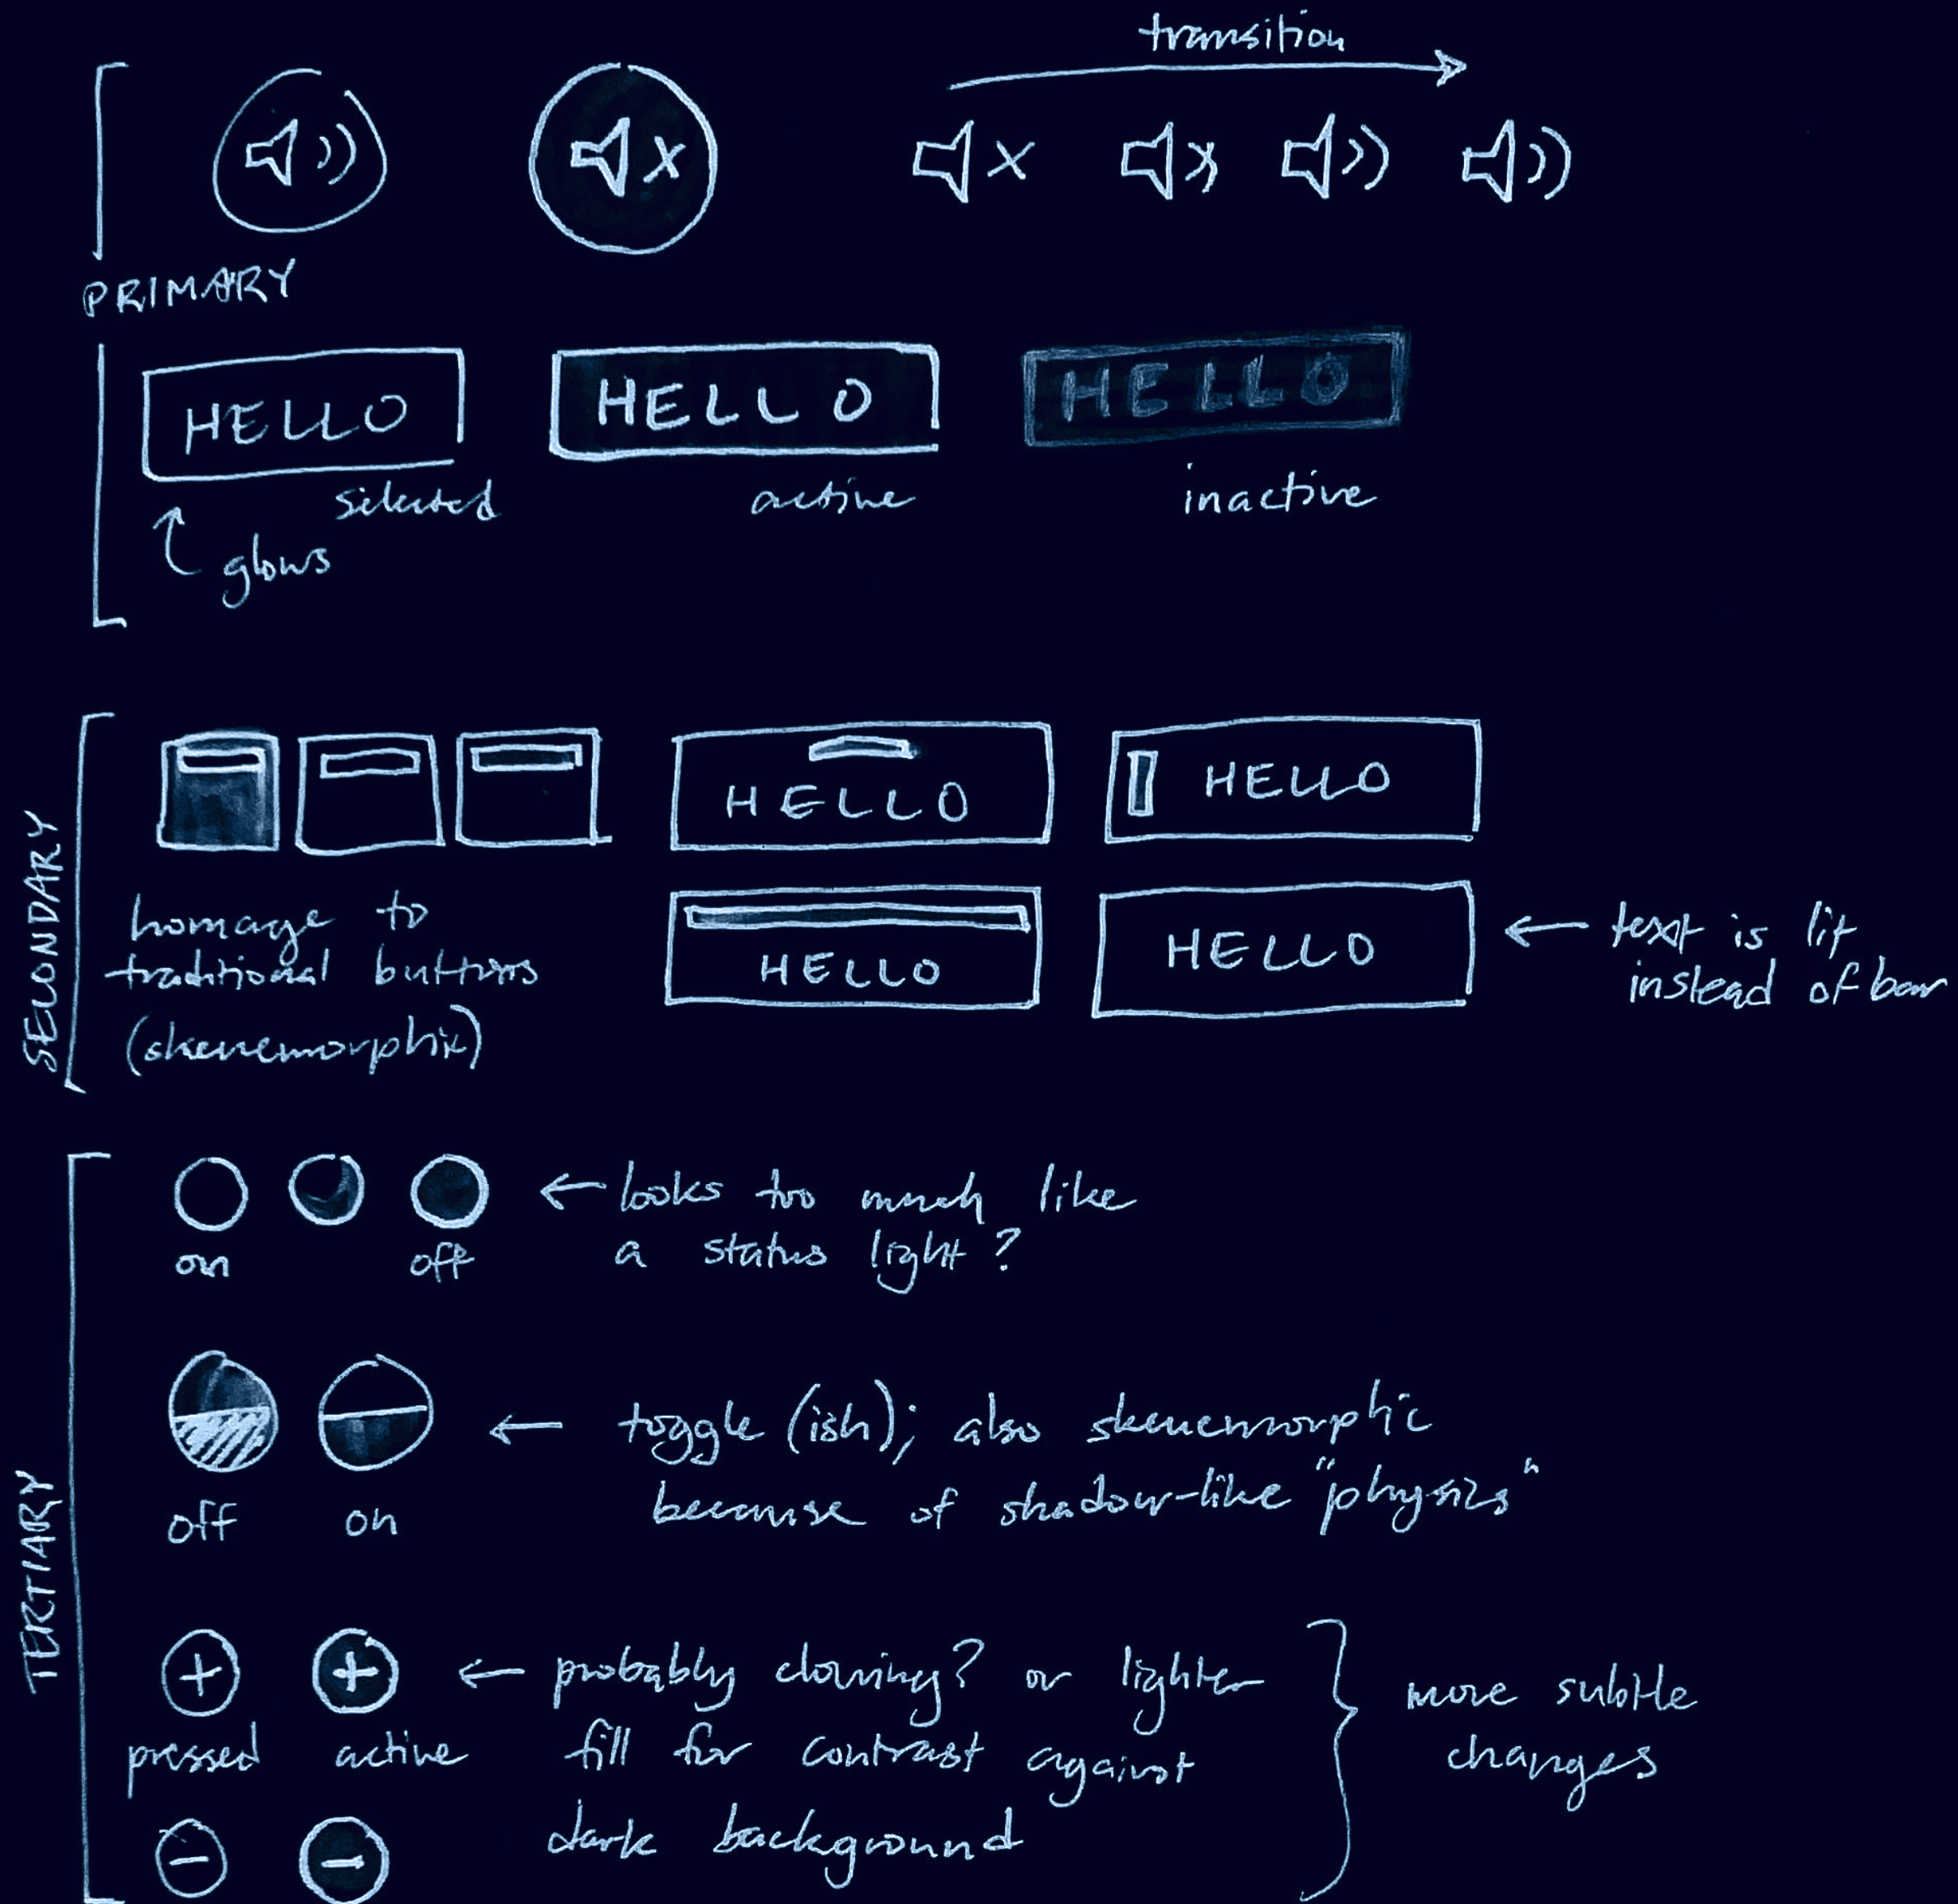 transition
PRIMARY
HELLO
HELLO
HELLO
selected
active
inactive
glows
SECONDARY
HELLO
HELLO
homage to
traditional buttons
(skenemorphic)
HELLO
HELLO
text is lit
instead of bar
TERTIARY
on
off
looks too much like
a status light?
off
on
toggle (ish); also skenemorphic
because of shadow-like "physics"
pressed
active
probably
? or lighter
fill for contrast against
dark background
more subtle
changes